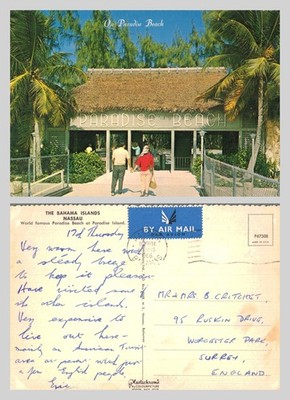 On Paradise Beach
PARADISE BEACH
THE BAHAMA ISLANDS
NASSAU
World famous Paradise Beach at Paradise Island.
BY AIR MAIL
Md Thursday
Very warm here with
a steady breeze
to keep it pleasant.
Have visited some
other island.
Very expensive to
live out here -
mainly an American Tourist
area at present with just
a few English people
Eric
MR & MRS B. CRITCHET,
95 RUSKIN DRIVE,
WORCESTER PARK,
SURREY,
ENGLAND.